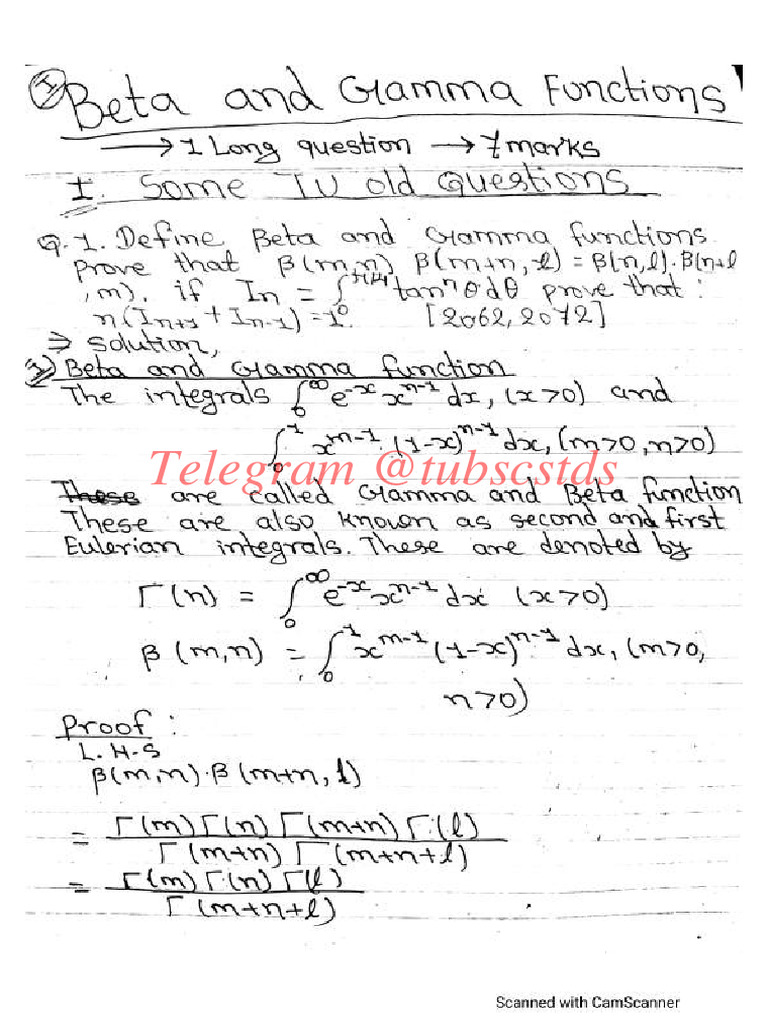 ① Beta and Gamma Functions
→ 1 Long question → 7 marks
I. Some TU old Questions
Q.1. Define Beta and Gamma functions.
prove that β(m,n) β(m+n, l) = β(n,l).β(n+l
, m). if In = ∫₀^(π/4) tanⁿθ.dθ prove that :
n(In+1 + In-1) = 1. [2062, 2072]
⇒ Solution,
① Beta and Gamma function
The integrals ∫₀^∞ e^-x x^n-1 dx, (x>0) and
∫₀^1 x^m-1 . (1-x)^n-1 dx, (m>0, n>0)
Telegram @tubscstds
are called Gamma and Beta function
These are also known as second and first
Eulerian integrals. These are denoted by
Γ(n) = ∫₀^∞ e^-x x^n-1 dx (x>0)
β (m,n) = ∫₀^1 x^m-1 (1-x)^n-1 dx, (m>0,
n>0)
Proof :
L.H.S
β(m,n).β (m+n, l)
= Γ(m) Γ(n) Γ(m+n) Γ(l)
Γ(m+n) Γ(m+n+l)
= Γ(m) Γ(n) Γ(l)
Γ(m+n+l)
Scanned with CamScanner